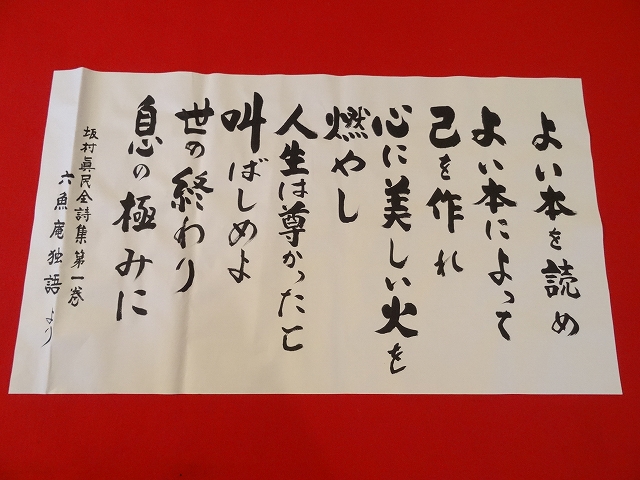 よい本を読め
よい本によって
己を作れ
心に美しい火を
燃やし
人生は尊かったと
叫ばしめよ
世の終わり
息の極みに
坂村眞民全詩集第一巻
六魚庵独語より